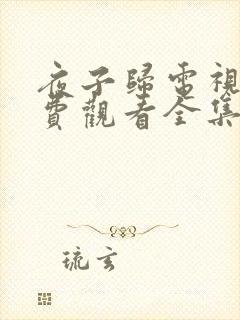 夜子歸電視
費觀看全集
琉玄